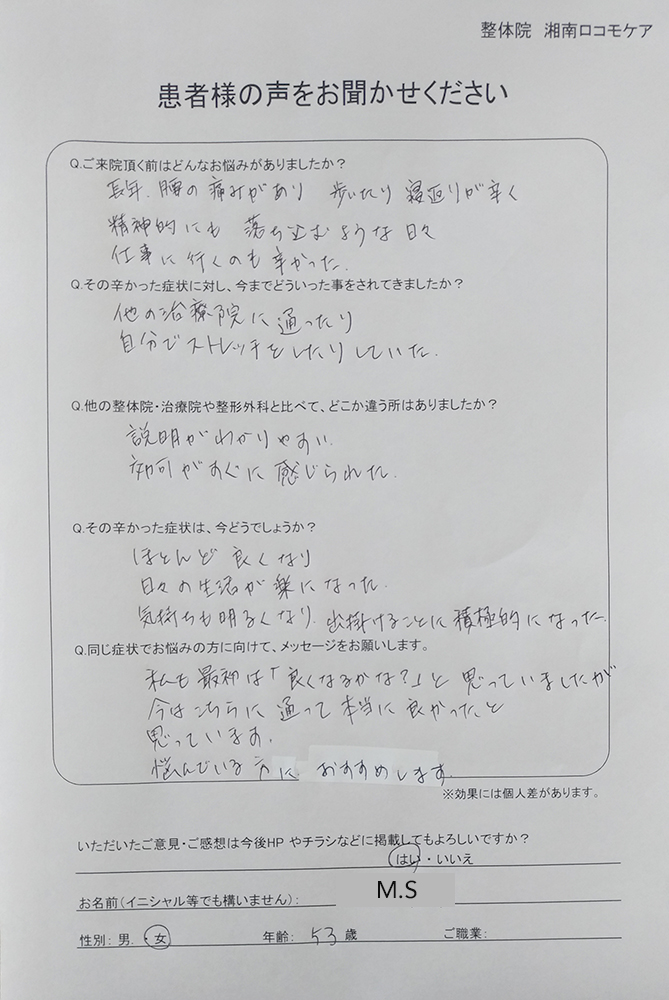 整体院 湘南ロコモケア
患者様の声をお聞かせください
Q.ご来院頂く前はどんなお悩みがありましたか？
長年、腰の痛みがあり 歩いたり 寝返りが辛く
精神的にも 落ち込むような日々
仕事に行くのも辛かった.
Q.その辛かった症状に対し、今までどういった事をされてきましたか？
他の治療院に通ったり
自分でストレッチをしたりしていた.
Q.他の整体院・治療院や整形外科と比べて、どこか違う所はありましたか？
説明がわかりやすい.
効可がすぐに感じられた.
Q.その辛かった症状は、今どうでしょうか？
ほとんど良くなり
日々の生活が楽になった.
気持ちも明るくなり. 出掛けることに積極的になった.
Q.同じ症状でお悩みの方に向けて、メッセージをお願いします。
私も最初は「良くなるかな？」と思っていましたが
今はこちらに通って本当に良かったと
思っています.
悩んでいる方に おすすめします.
※効果には個人差があります。
いただいたご意見・ご感想は今後HPやチラシなどに掲載してもよろしいですか？
はい・いいえ
お名前(イニシャル等でも構いません)： M.S
性別：男.・女 年齢： 53 歳 ご職業：